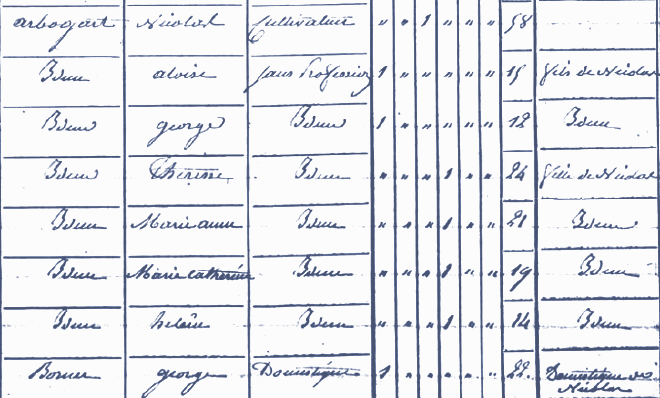 arbogast Nicolas Cultivateur " " 1 " " " 58
Idem aloise sans Profession 1 " " " " " 15 fils de Nicolas
Idem george Idem 1 " " " " " 12 Idem
Idem Thérèse Idem " " " 1 " " 24 fille de Nicolas
Idem Marie anne Idem " " " 1 " " 21 Idem
Idem Marie catherine Idem " " " 1 " " 19 Idem
Idem heloïse Idem " " " 1 " " 14 Idem
george Domestique 1 " " " " " 22 Domestique de
Nicolas